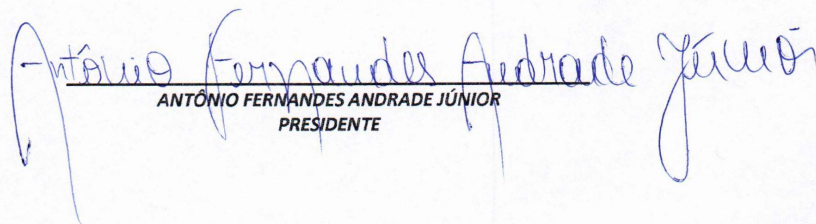 Antônio Fernandes Andrade Júnior
ANTÔNIO FERNANDES ANDRADE JÚNIOR
PRESIDENTE